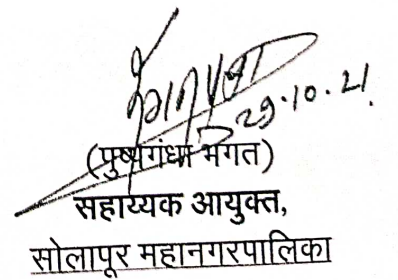 29.10.21.
(पुष्पगंधा भगत)
सहाय्यक आयुक्त,
सोलापूर महानगरपालिका